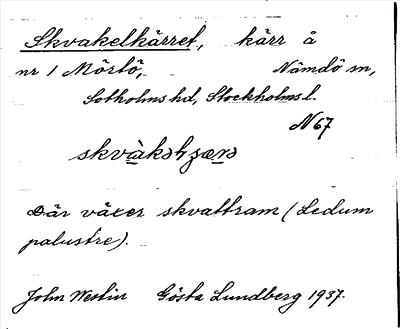 Skvakelkärret, kärr å
nr 1 Mörtö, Nämdö sn,
Sotholms hd, Stockholms l.
N 67
Där växer skvattram (Ledum
palustre).
John Westin Gösta Lundberg 1937.